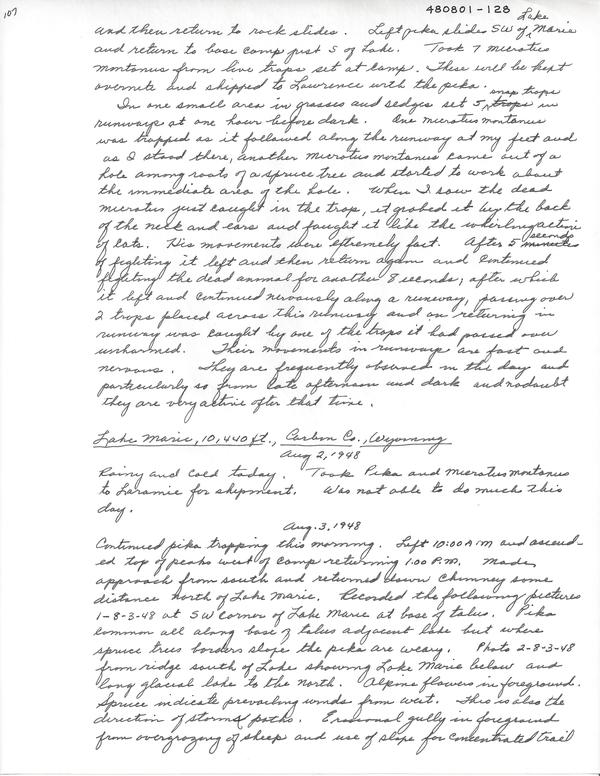 107
480801-128
and then return to rock slides. Left pika slides SW of Lake Marie
and return to base camp just S of Lake. Took 7 microtus
montanus from live traps set at camp. These will be kept
overnite and shipped to Lawrence with the pika.
In one small area in grasses and sedges set 5 snap traps in
runways at one hour before dark. One microtus montanus
was trapped as it followed along the runway at my feet and
as I stood there, another microtus montanus came out of a
hole among roots of a spruce tree and started to work about
the immediate area of the hole. When I saw the dead
microtus just caught in the trap, it grabed it by the back
of the neck and ears and faught it like the whirling action
of cats. His movements were extremely fast. After 5 seconds
of fighting it left and then return again and continued
fighting the dead animal for another 8 seconds, after which
it left and continued nervously along a runway, passing over
2 traps placed across this runway and on returning in
runway was caught by one of the traps it had passed over
unharmed. Their movements in runways are fast and
nervous. They are frequently observed in the day and
particularly so from late afternoon and dark and nodoubt
they are very active after that time.
Lake Marie, 10,440 ft., Carbon Co., Wyoming
Aug 2, 1948
Rainy and cold today. Took Pika and microtus montanus
to Laramie for shipment. Was not able to do much this
day.
Aug. 3, 1948
Continued pika trapping this morning. Left 10:00 A M and ascend-
ed top of peaks west of camp returning 1:00 P.M. Made
approach from south and returned down chimney some
distance north of Lake Marie. Recorded the following pictures
1-8-3-48 at SW corner of Lake Marie at base of talus. Pika
common all along base of talus adjacent lake but where
spruce trees borders slope the pika are weary. Photo 2-8-3-48
from ridge south of Lake showing Lake Marie below and
long glacial lake to the north. Alpine flowers in foreground.
Spruce indicate prevailing winds from west. This is also the
direction of storms paths. Erosional gully in foreground
from overgrazing of sheep and use of slope for concentrated trail